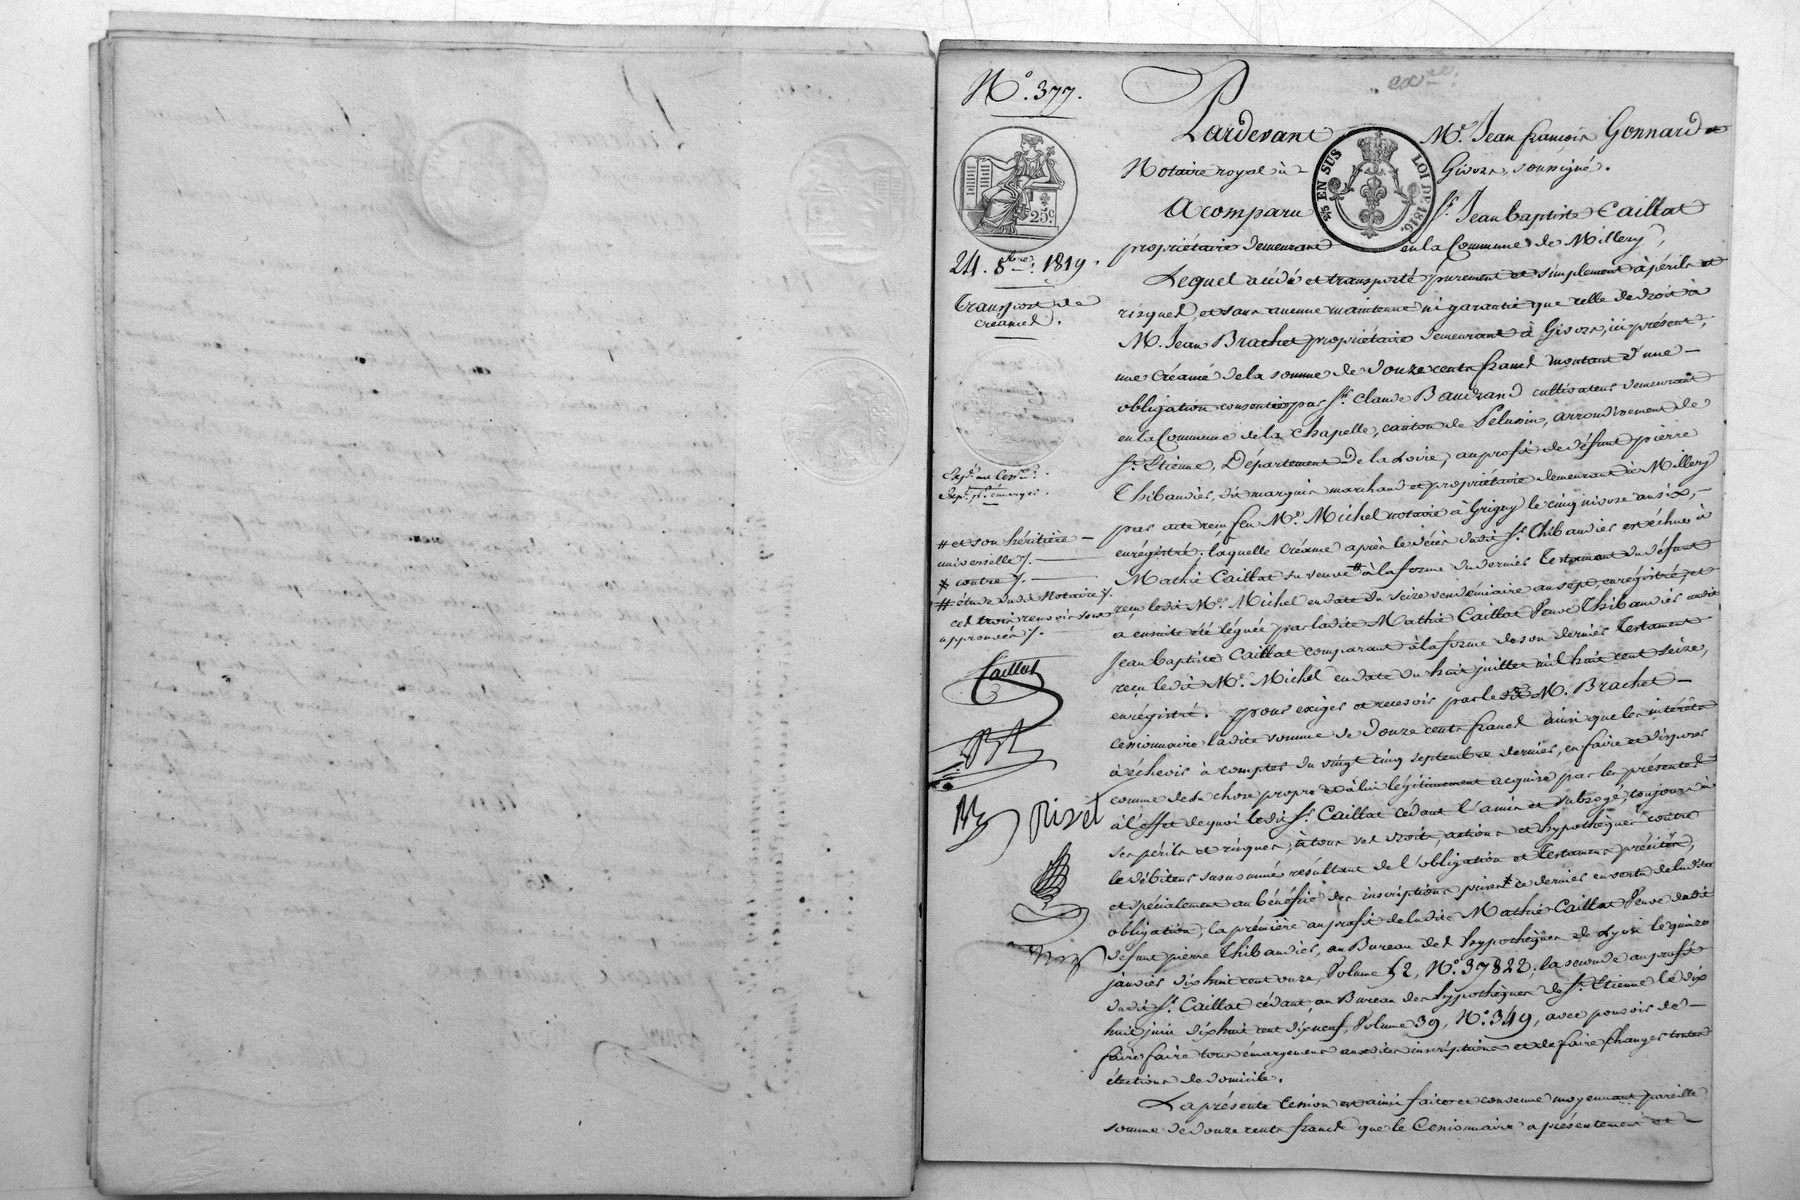 N.° 377.
25c.
24. 8bre. 1819.
Transport de
créance.
# et son héritière
universelle ./.
x contre ./.
# étude dudit Notaire ./.
ces trois renvois sont
approuvés ./.
Caillat
Rivet
5/5 EN SUS
LOI DE 1816.
Pardevant Me. Jean françois Gonnard
Notaire royal à Givors, soussigné.
A comparu Sr. Jean baptiste Caillat
propriétaire demeurant en la Commune de Millery,
Lequel a cédé et transporté purement et simplement à périls et
risques, et sans aucune maintenue ni garantie que celle de droit à
M. Jean Brachet propriétaire demeurant à Givors, ici présent,
une Créance de la somme de douze cents francs montant d'une
obligation consentie par Sr. Claude Baudrand cultivateur demeurant
en la Commune de la Chapelle, canton de Pelussin, arrondissement de
St. Etienne, Département de la Loire, au profit de défunt pierre
Thibaudier, dit marquis marchand et propriétaire demeurant à Millery
par acte reçu feu Me. Michel notaire à Grigny le cinq nivose an six,
enrégistré. laquelle Créance après le décès dudit Sr. Thibaudier est échue à
Mathie Caillat sa veuve # à la forme du dernier Testament du défunt
reçu ledit Me. Michel en date du seize vendémiaire an sept, enrégistré, et
a ensuite été léguée par ladite Mathie Caillat Veuve Thibaudier audit
Jean baptiste Caillat comparant à la forme de son dernier Testament
reçu ledit Me. Michel en date du huit juillet mil huit cent seize,
enrégistré. pour exiger et recevoir par ledit M. Brachet
Cessionnaire ladite somme de douze cents francs ainsi que les intérêts
à échevoir à compter du vingt cinq septembre dernier, en faire et disposer
comme de sa chose propre et à lui légitimement acquise par les présentes
à l'effet de quoi ledit Sr. Caillat cédant l'a mis et subrogé, toujours à
ses périls et risques, à tous ses droits, actions et hypothèques contre
le débiteur susnommé résultant de l'obligation et Testament précités,
et spécialement au bénéfice des inscriptions prises x ce dernier en vertu de ladite
obligation, la première au profit de ladite Mathie Caillat Veuve dudit
défunt pierre Thibaudier, au Bureau des hypothèques de Lyon le quinze
janvier dix huit cent onze, Volume 52, N.° 37822; la seconde au profit
dudit Sr. Caillat cédant, au Bureau des hypothèques de St. Etienne le dix
huit juin dix huit cent dix neuf, Volume 39, N.° 349, avec pouvoir de
faire faire tous émargemens auxdites inscriptions et de faire changer toutes
élections de domicile.
La présente Cession est ainsi faite et convenue moyennant pareille
somme de douze cents francs que le Cessionnaire a présentement et